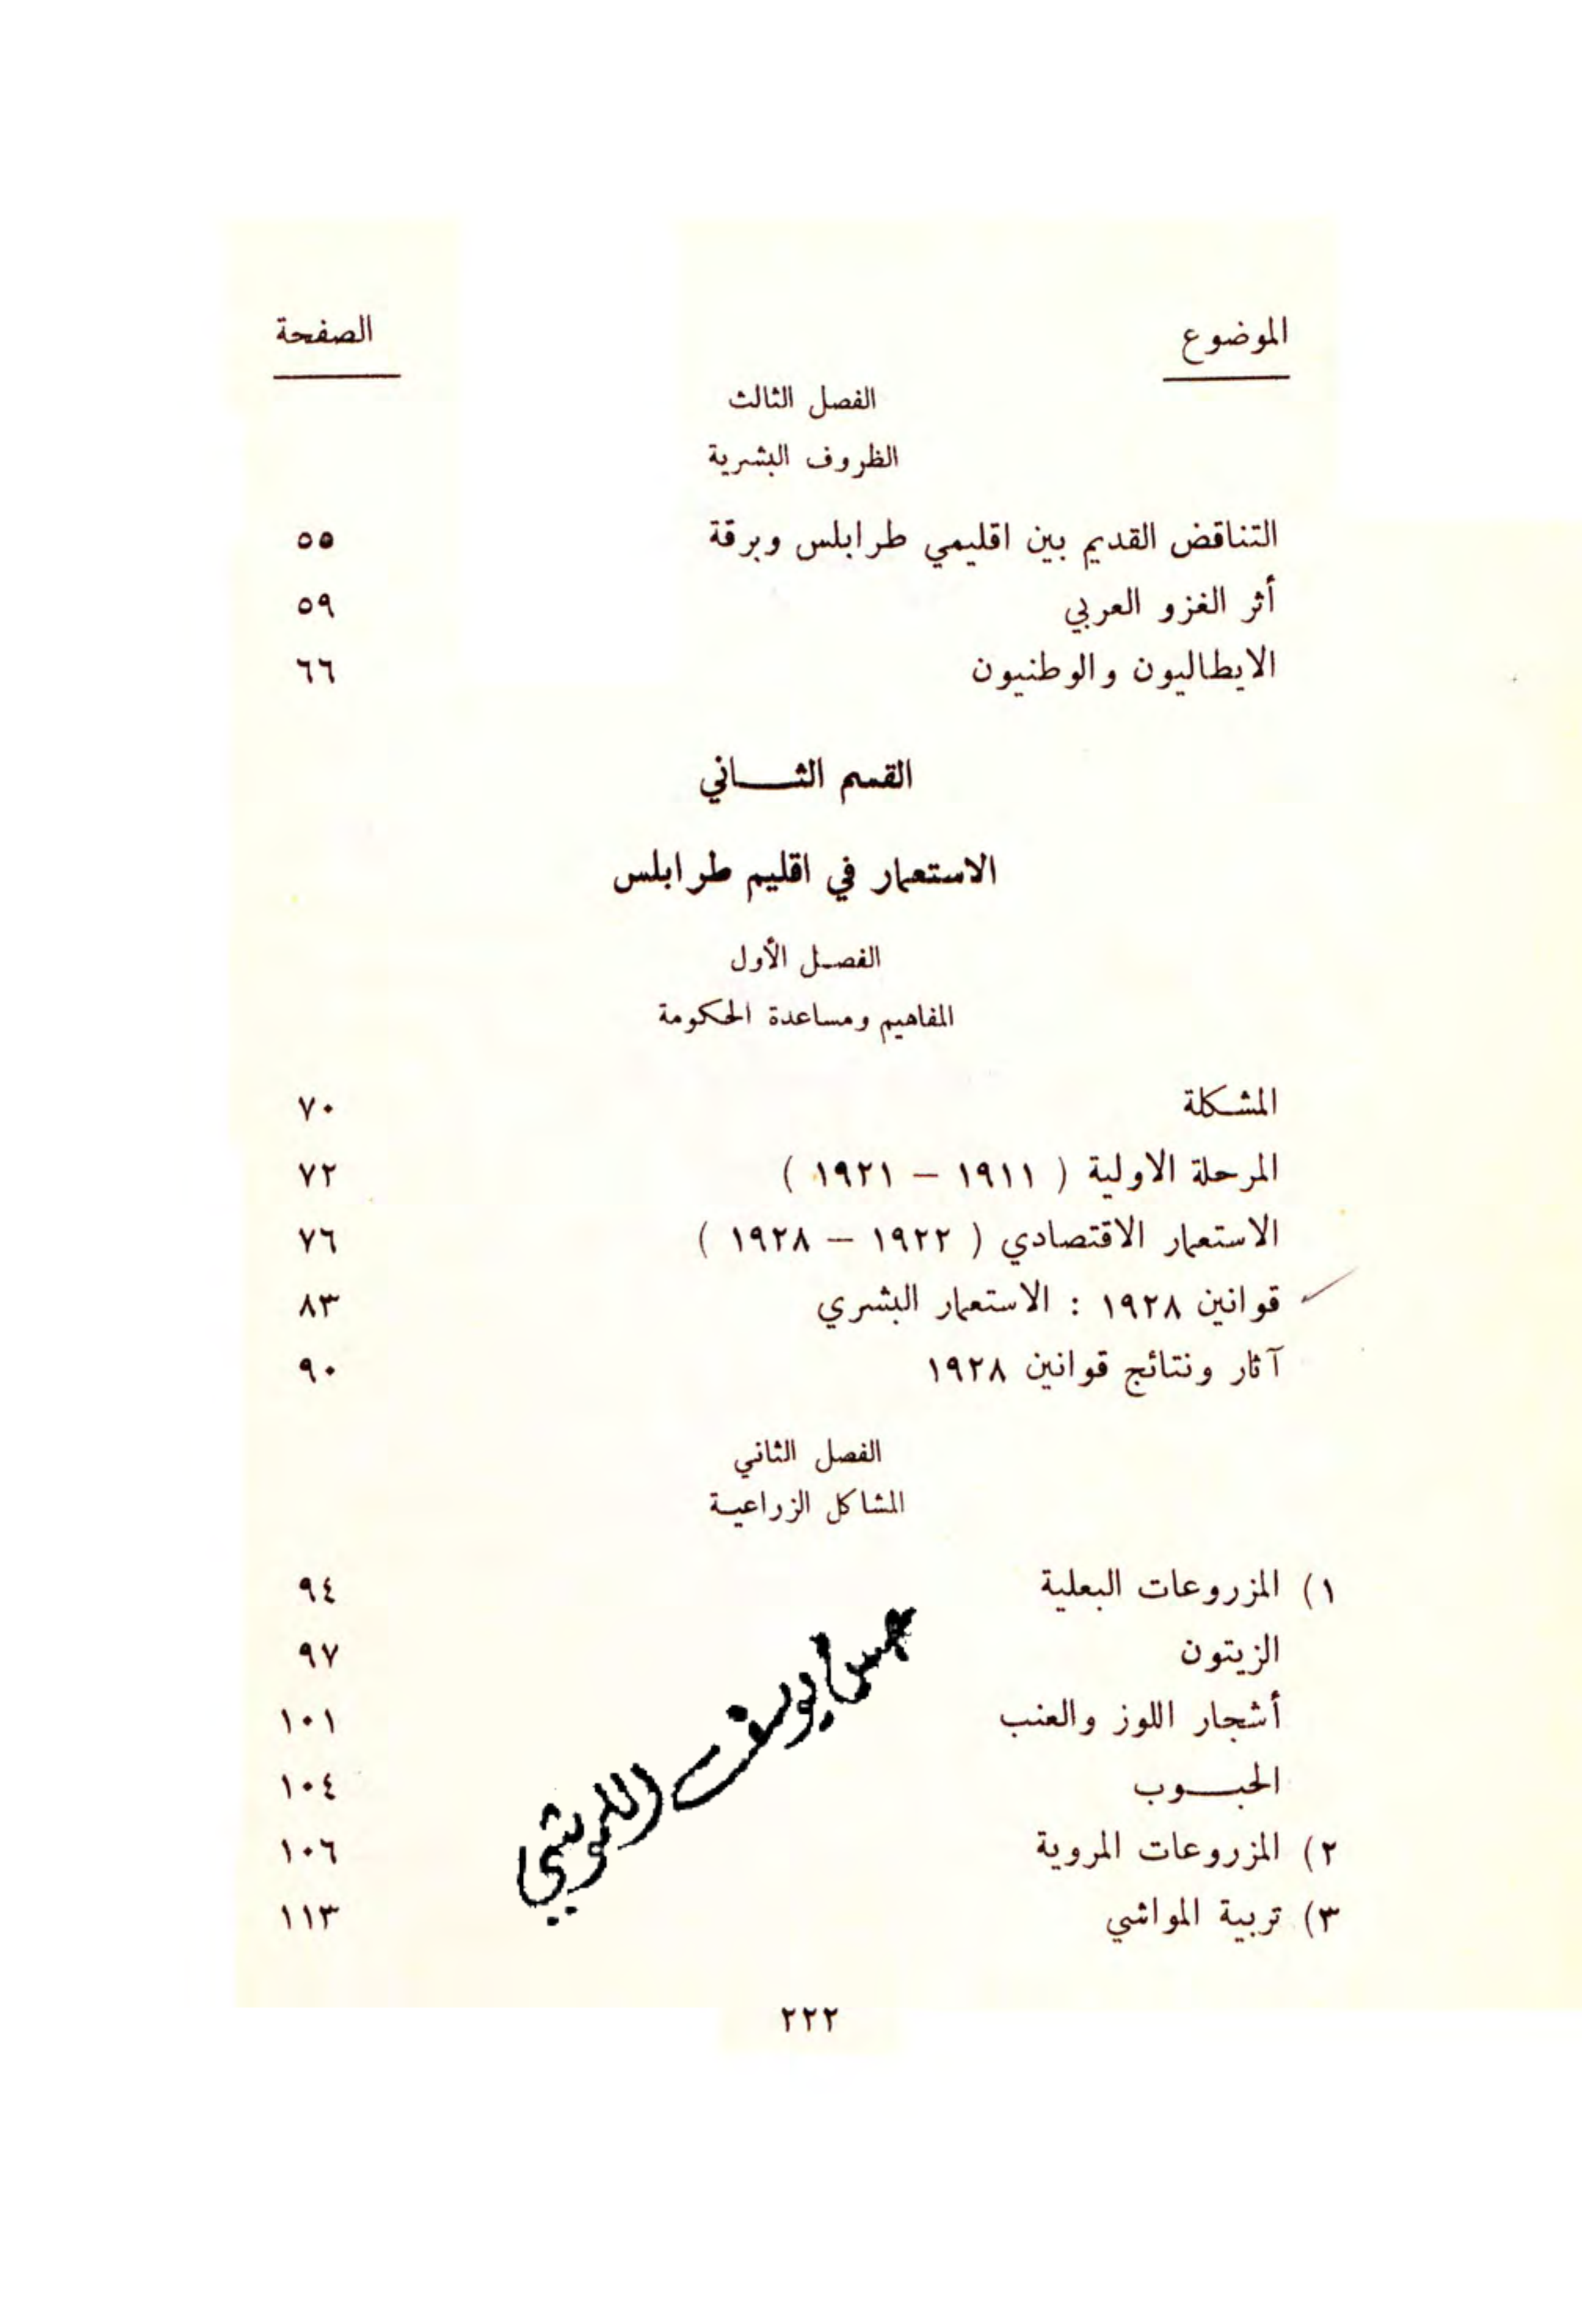 الموضوع الصفحة
الفصل الثالث
الظروف البشرية
التناقض القديم بين اقليمي طرابلس وبرقة ٥٥
أثر الغزو العربي ٥٩
الايطاليون والوطنيون ٦٦
القسم الثـــاني
الاستعمار في اقليم طرابلس
الفصل الأول
المفاهيم ومساعدة الحكومة
المشكلة ٧٠
المرحلة الاولية ( ١٩١١ – ١٩٢١ ) ٧٢
الاستعمار الاقتصادي ( ١٩٢٢ – ١٩٢٨ ) ٧٦
قوانين ١٩٢٨ : الاستعمار البشري ٨٣
آثار ونتائج قوانين ١٩٢٨ ٩٠
الفصل الثاني
المشاكل الزراعية
١) المزروعات البعلية ٩٤
الزيتون ٩٧
أشجار اللوز والعنب ١٠١
الحبـــوب ١٠٤
٢) المزروعات المروية ١٠٦
٣) تربية المواشي ١١٣
يوسف
٢٢٢